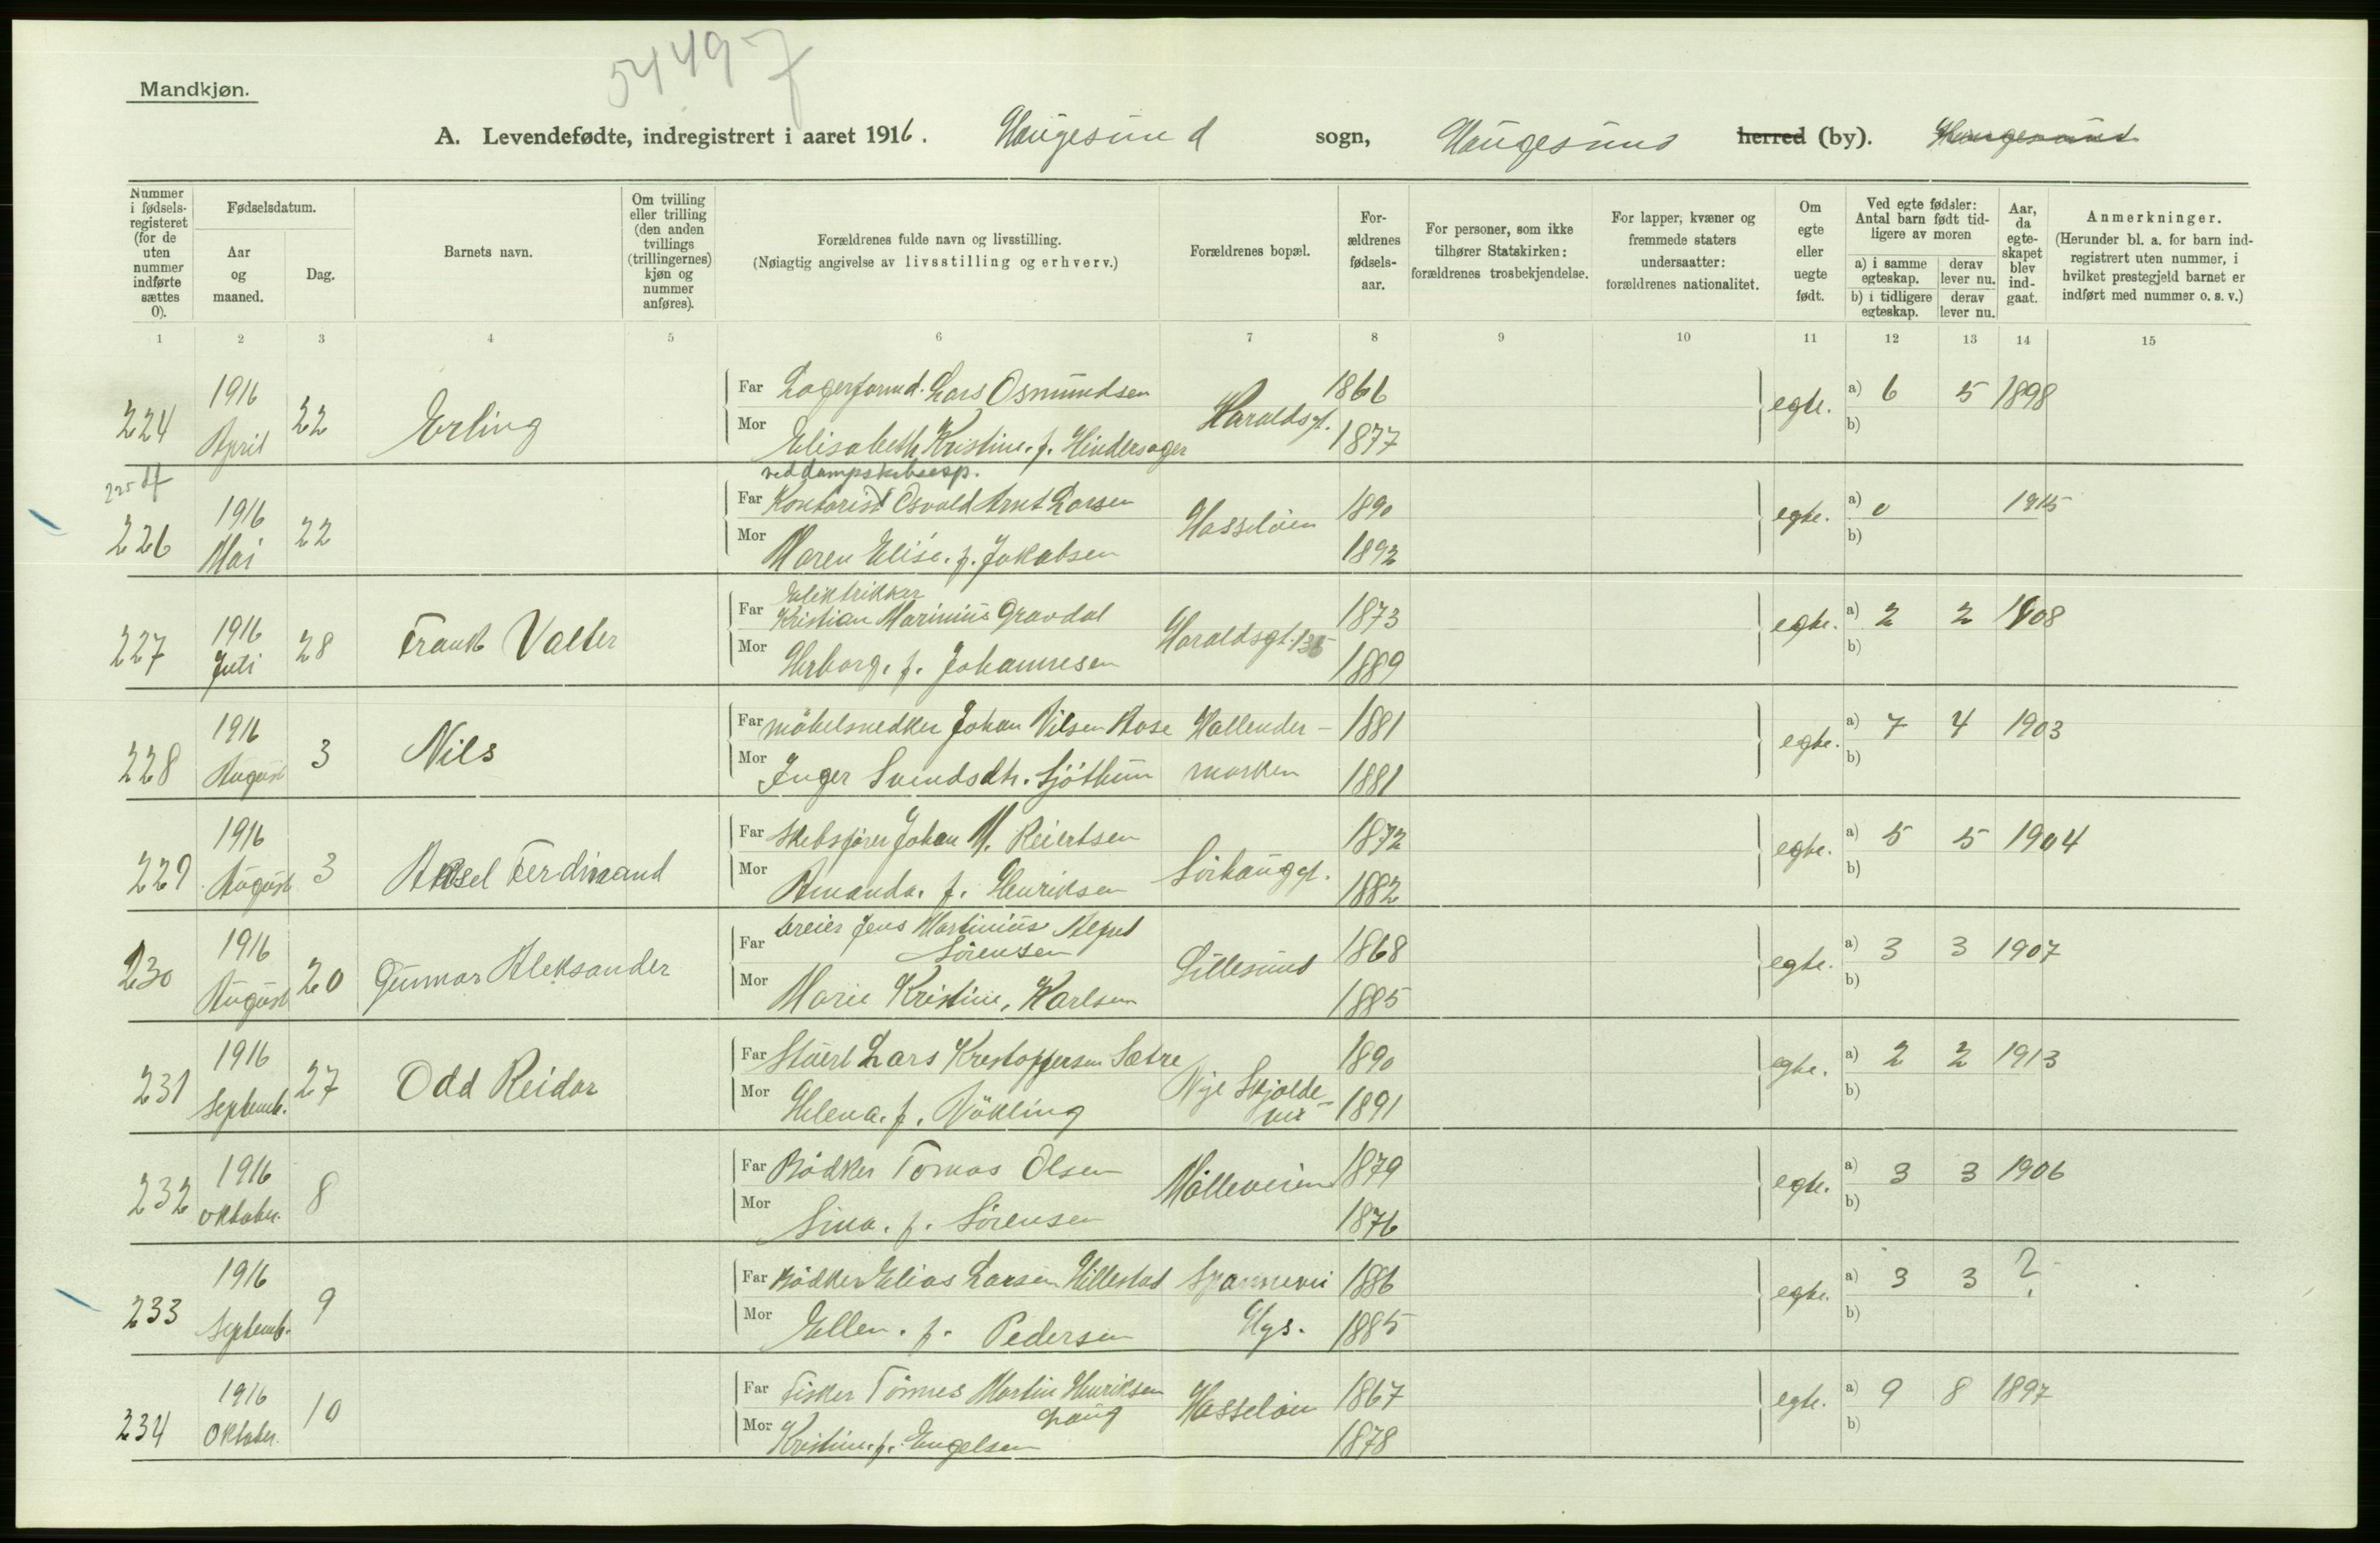 54497
Mandkjøn.
A. Levendefødte, indregistrert i aaret 1916. Haugesund sogn, Haugesund herred (by). Haugesund
Nummer i fødsels-registeret (for de uten nummer indførte sættes 0).
Fødselsdatum.
Aar og maaned.
Dag.
Barnets navn.
Om tvilling eller trilling (den anden tvillings (trillingernes) kjøn og nummer anføres).
Forældrenes fulde navn og livsstilling.
(Nøiagtig angivelse av livsstilling og erhverv.)
Forældrenes bopæl.
For-ældrenes fødsels-aar.
For personer, som ikke tilhører Statskirken: forældrenes trosbekjendelse.
For lapper, kvæner og fremmede staters undersaatter: forældrenes nationalitet.
Om egte eller uegte født.
Ved egte fødsler: Antal barn født tid-ligere av moren
a) i samme egteskap.
derav lever nu.
b) i tidligere egteskap.
derav lever nu.
Aar, da egte-skapet blev ind-gaat.
Anmerkninger.
(Herunder bl. a. for barn ind-registrert uten nummer, i hvilket prestegjeld barnet er indført med nummer o. s. v.)
1 2 3 4 5 6 7 8 9 10 11 12 13 14 15
224 1916 April 22 Erling
Far Lagerformd. Lars Osmundsen 1866
Mor Elisabeth Kristine. f. Hindersager 1877
Haraldsgt. egte. a) 6 5 1898
b)
225 df
226 1916 Mai 22
ved dampskibsexp.
Far Kontorist Osvald Arnt Larsen 1890
Mor Maren Elise. f. Jakobsen 1892
Hasseløen egte. a) 0 1915
b)
227 1916 Juli 28 Frank Valter
Elektrikker
Far Kristian Marinius Gravdal 1873
Mor Herborg. f. Johannesen 1889
Haraldsgt. 135 egte. a) 2 2 1908
b)
228 1916 August 3 Nils
Far møbelsnedker Johan Nilsen Aase 1881
Mor Inger Svendsdtr. Sjøthun 1881
Hallender-marken egte. a) 7 4 1903
b)
229 1916 August 3 Aksel Ferdinand
Far Skibsfører Johan M. Reiertsen 1872
Mor Amanda. f. Henriksen 1882
Sørhauggt. egte. a) 5 5 1904
b)
230 1916 August 20 Gunnar Aleksander
Far Dreier Jens Martinius Alfred
Sørensen 1868
Mor Marie Kristine, Karlsen 1885
Lillesund egte. a) 3 3 1907
b)
231 1916 Septemb. 27 Odd Reidar
Far Stuert Lars Kristoffersen Sætre 1890
Mor Helena. f. Nökling 1891
Nye Skjolde-vei egte. a) 2 2 1913
b)
232 1916 Oktober. 8
Far Bødker Tomas Olsen 1879
Mor Sina. f. Sørensen 1876
Mølleveien egte. a) 3 3 1906
b)
233 1916 Septemb. 9
Far Bødker Elias Larsen Hillestad 1886
Mor Ellen. f. Pedersen 1885
Spannevei Hgs. egte. a) 3 3 ?
b)
234 1916 Oktober. 10
Far Fisker Tønnes Martin Henriksen
Haug 1867
Mor Kristine. f. Engelsen 1878
Hasseløen egte. a) 9 8 1897
b)